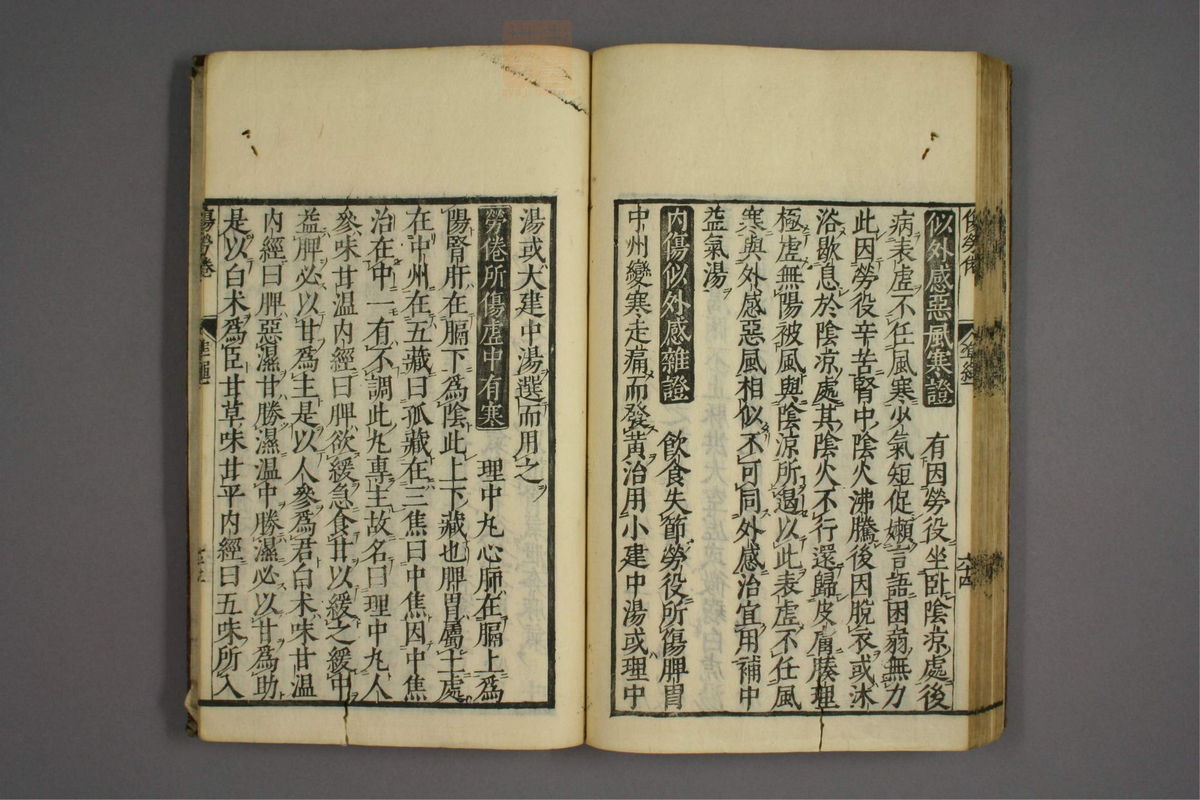 似外感惡風寒證 有因勞役坐卧陰凉處後
病表虛不任風寒少氣短促嬾言語困弱無力
此因勞役辛苦腎中陰火沸騰後因脫衣或沐
浴歇息於陰凉處其陰火不行還歸皮膚腠理
極虛無陽被風與陰凉所遏以此表虛不任風
寒與外感惡風相似不可同外感治宜用補中
益氣湯
內傷似外感雜證 飲食失節勞役所傷脾胃
中州變寒走痛而發黃治用小建中湯或理中
湯或大建中湯選而用之
勞倦所傷虛中有寒 理中丸心肺在膈上爲
陽腎肝在膈下爲陰此上下藏也脾胃屬土處
在中州在五藏曰孤藏在三焦曰中焦因中焦
治在中一有不調此丸專主故名曰理中丸人
參味甘溫內經曰脾欲緩急食甘以緩之緩中
益脾必以甘爲主是以人參爲君白术味甘溫
內經曰脾惡濕甘勝濕溫中勝濕必以甘爲助
是以白术爲臣甘草味甘平內經曰五味所入